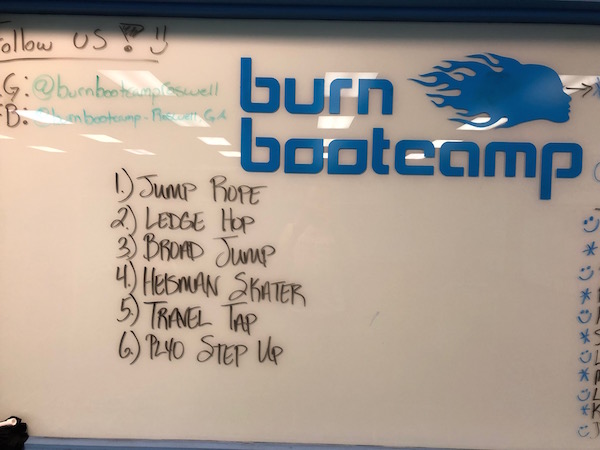 Follow US
IG: @burnbootcamproswell
FB: @burnbootcamp-Roswell, GA
burn
bootcamp
1.) JUMP ROPE
2.) LEDGE HOP
3.) BROAD JUMP
4.) HEISMAN SKATER
5.) TRAVEL TAP
6.) PLYO STEP UP